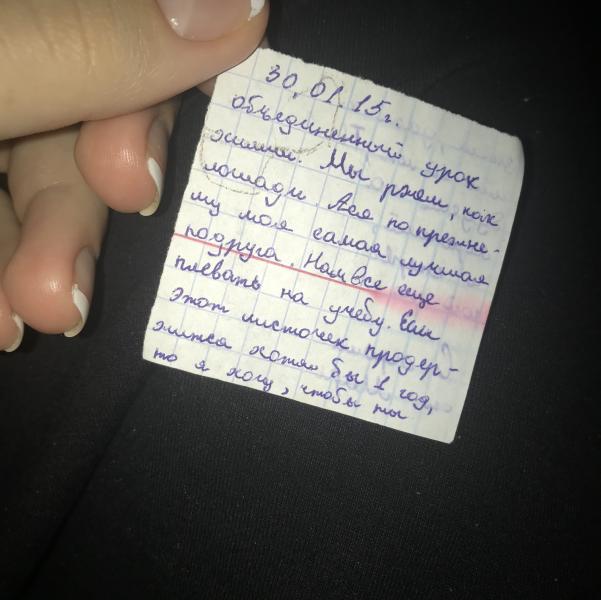 30.01.15г.
объединенный урок
химии. Мы ржем, как
лошади. Ася по прежне-
му моя самая лучшая
подруга. Нам все еще
плевать на учебу. Если
этот листочек продер-
жится хотя бы 1 год,
то я хочу, чтобы ты